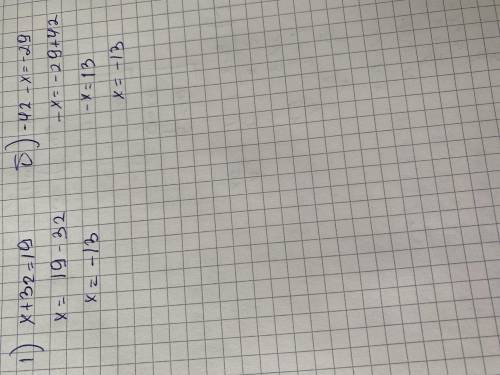 1) x+32=19
x = 19-32
x = -13
б) -42-x=-29
-x=-29+42
-x=13
x=-13